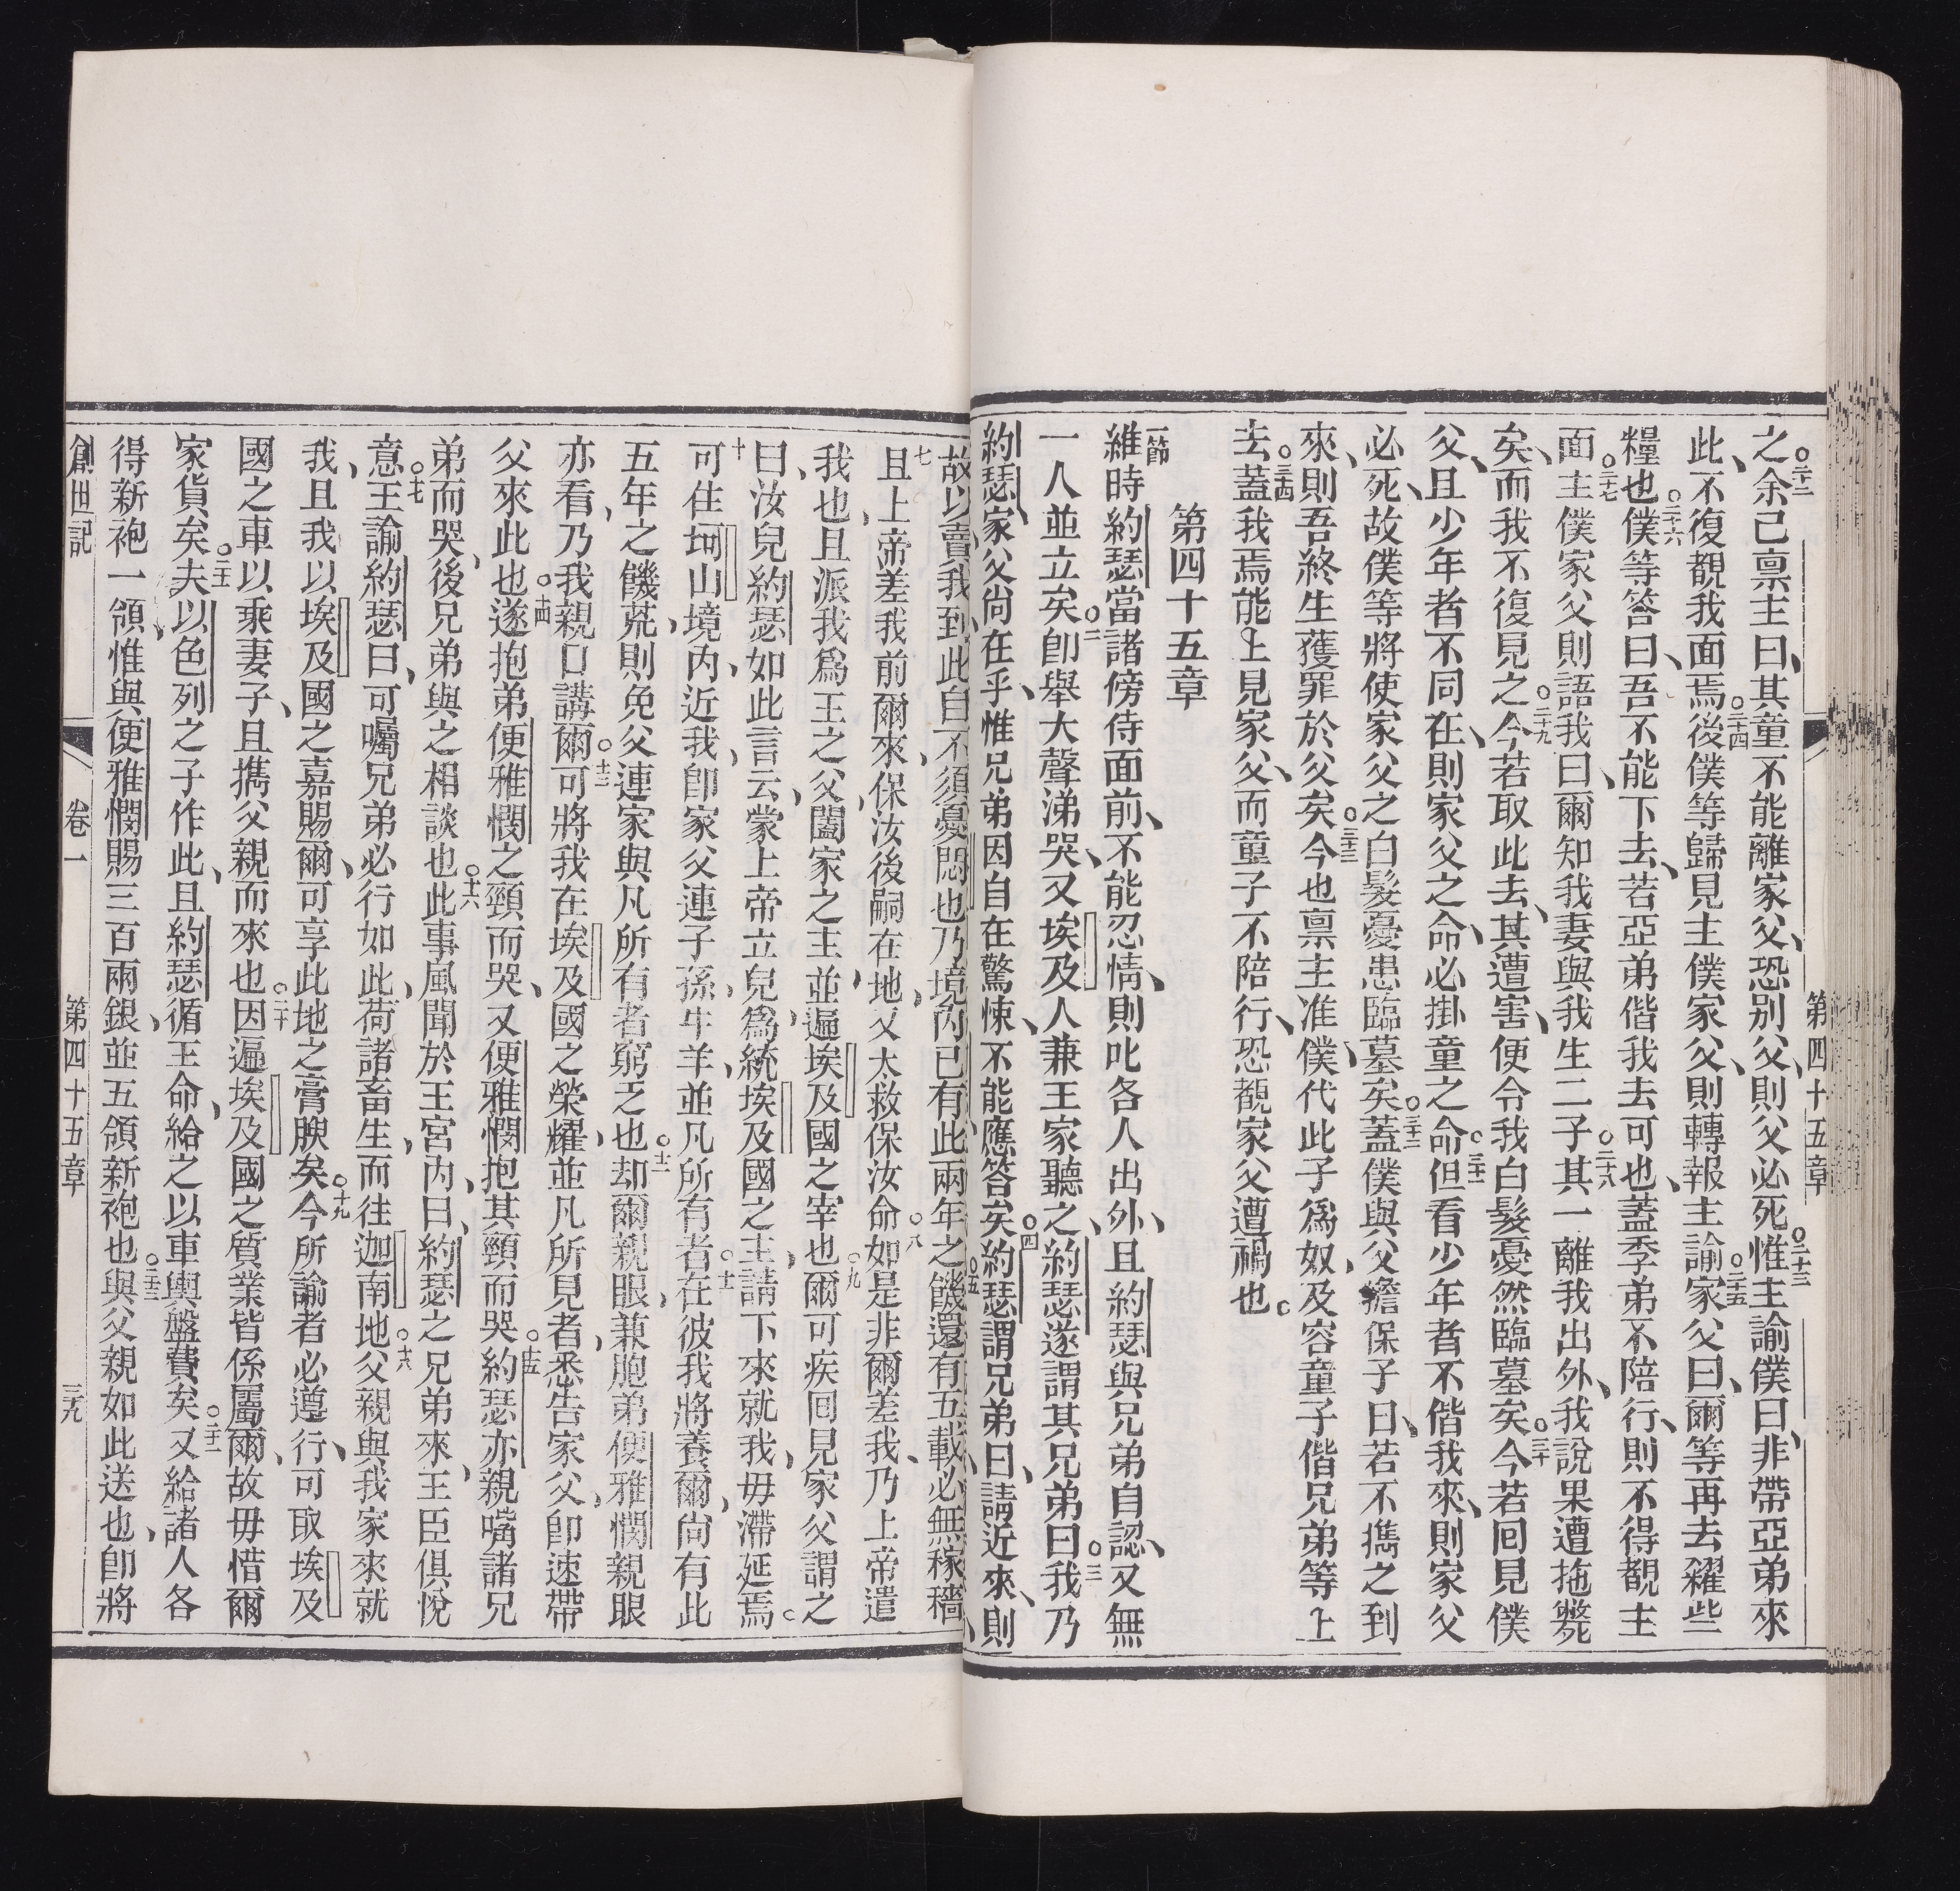 第四十五章
之余已稟主曰其童不能離家父恐别父則父必死惟主諭僕曰非帶亞弟來
此不復覩我面焉後僕等歸見主僕家父則轉報主諭家父曰爾等再去糴些
糧也僕等答曰吾不能下去若亞弟偕我去可也蓋季弟不陪行則不得覩主
面主僕家父則語我曰爾知我妻與我生二子其一離我出外我說果遭拖斃
矣而我不復見之今若取此去其遭害便令我白髮憂然臨墓矣今若囘見僕
父且少年者不同在則家父之命必掛童之命但看少年者不偕我來則家父
必死故僕等將使家父之白髮憂患臨墓矣蓋僕與父擔保子曰若不擕之到
來則吾終生獲罪於父矣今也稟主准僕代此子爲奴及容童子偕兄弟等上
去蓋我焉能上見家父而童子不陪行恐覩家父遭禍也
第四十五章
一節維時約瑟當諸傍侍面前不能忍情則叱各人出外且約瑟與兄弟自認又無
一人並立矣卽舉大聲涕哭又埃及人兼王家聽之約瑟遂謂其兄弟曰我乃
約瑟家父尚在乎惟兄弟因自在驚悚不能應答矣約瑟謂兄弟曰請近來則
故以賣我到此自不須憂悶也乃境內已有此兩年之饑還有五載必無稼穡
且上帝差我前爾來保汝後嗣在地又太救保汝命如是非爾差我乃上帝遣
我也且派我爲王之父闔家之主並遍埃及國之宰也爾可疾囘見家父謂之
曰汝兒約瑟如此言云蒙上帝立兒爲統埃及國之主請下來就我毋滯延焉
可住坷山境內近我卽家父連子孫牛羊並凡所有者在彼我將養爾尚有此
五年之饑荒則免父連家與凡所有者窮乏也却爾親眼兼胞弟便雅憫親眼
亦看乃我親口講爾可將我在埃及國之榮耀並凡所見者悉告家父卽速帶
父來此也遂抱弟便雅憫之頸而哭又便雅憫抱其頸而哭約瑟亦親嘴諸兄
弟而哭後兄弟與之相談也此事風聞於王宮內曰約瑟之兄弟來王臣俱悅
意王諭約瑟曰可囑兄弟必行如此荷諸畜生而往迦南地父親與我家來就
我且我以埃及國之嘉賜爾可享此地之膏腴矣今所諭者必遵行可取埃及
國之車以乘妻子且擕父親而來也因遍埃及國之質業皆係屬爾故毋惜爾
家貨矣夫以色列之子作此且約瑟循王命給之以車輿盤費矣又給諸人各
得新袍一領惟與便雅憫賜三百兩銀並五領新袍也與父親如此送也卽將
創世記 卷一 第四十五章 三九